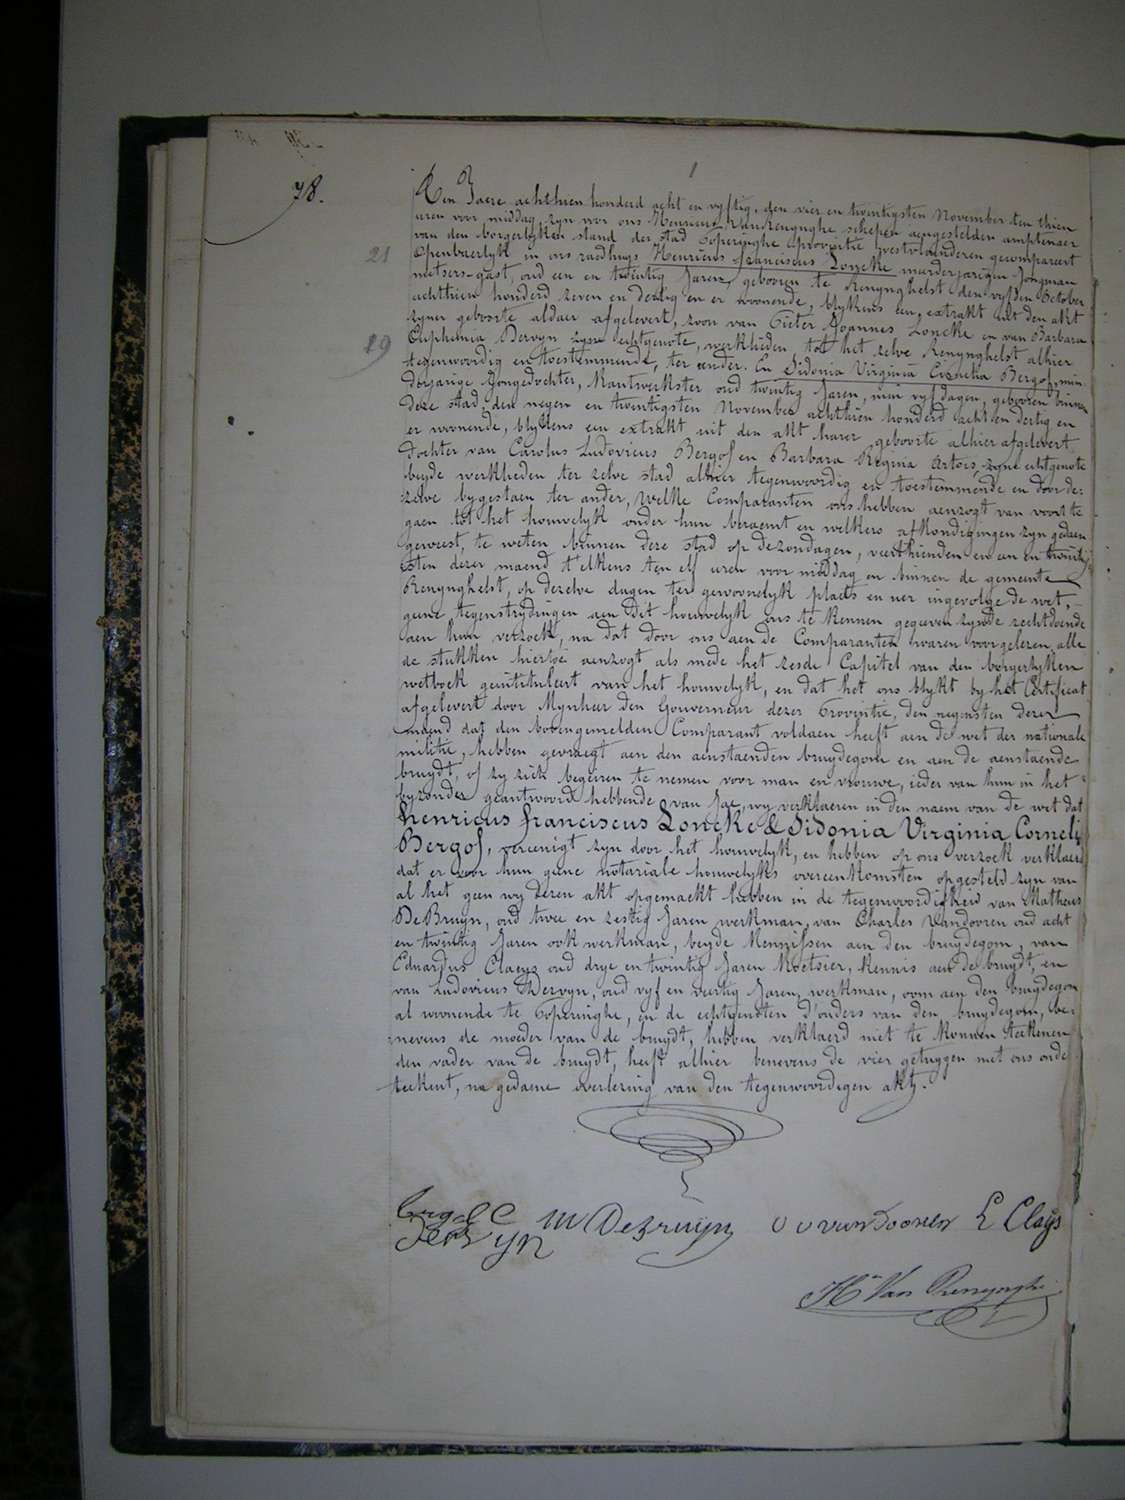 78.
Den Jaere achthien honderd acht en vyftig, den vier en twintigsten November ten thien
uren voor middag, zyn voor ons Henricus Vanrenynghe schepen aengestelden amptenaer
van den borgerlyken stand der stad Poperinghe provintie westvlaenderen gecompareert
21
openbaerlyk in ons raedhuys Henricus franciscus Loncke meerderjarigen Jongman
metsers-gast, oud een en twintig Jaren, gebooren te Renynghelst den vyfden October
achthien honderd zeven en dertig en er woonende, blykens een extrakt uit den akt
zyner geboorte aldaer afgelevert, zoon van Pieter Joannes Loncke en van Barbara
Euphemia Dervyn zyne echtgenote, werklieden tot het zelve Renynghelst alhier
19
tegenwoordig en toestemmende, ter eender. En Sidonia Virginia Cornelia Bergof, min
derjarige Jongedochter, Kantwerkster oud twintig Jaren, min vyf dagen, gebooren binnen
deze stad den negen en twintigsten November achthien honderd acht en dertig en
er woonende, blykens een extrakt uit den akt harer geboorte alhier afgelevert
dochter van Carolus Ludovicus Bergof en Barbara Regina Artois, zyne echtgenote
beyde werklieden ter zelve stad alhier tegenwoordig en toestemmende en door de-
zelve bygestaen ter ander, welke Comparanten ons hebben aenzogt van voort te
gaen tot het houwelyk onder hun beraemt en welkers afkondigingen zyn gedaen
geweest, te weten binnen deze stad op de zondagen, veerthienden en een en twintig
sten dezer maend t'elkens ten elf uren voor middag en binnen de gemeente
Renynghelst, op dezelve dagen ter gewoonelyk plaets en uer ingevolge de wet,
geene tegenstrydingen aen dit houwelyk ons te kennen gegeven zynde rechtdoende
aen hun verzoek, na dat door ons aen de Comparanten waren voorgelezen alle
de stukken hiertoe aenzogt als mede het zesde Capitel van den borgerlyken
wetboek geintituleert van het houwelyk, en dat het ons blykt by het Certificat
afgelevert door Mynheer den Gouverneur dezer Provintie, den negensten dezer
maend dat den bovengemelden Comparant voldaen heeft aen de wet der nationale
militie, hebben gevraegt aen den aenstaenden bruydegom en aen de aenstaende
bruydt, of zy zich begeiren te nemen voor man en vrouwe, ieder van hun in het
byzonder geantwoord hebbende van Jae, wy verklaeren in den naem van de wet dat
henricus franciscus Loncke & Sidonia Virginia Corneli
Bergof, vereenigt zyn door het houwelyk, en hebben op ons verzoek verklaerd
dat er voor hun geene notariale houwelyks overeenkomsten opgesteld zyn van
al het geen wy dezen akt opgemackt hebben in de tegenwoordigheid van Matheus
De Bruyn, oud twee en zestig Jaren werkman, van Charles Vandooren oud acht
en twintig Jaren ook werkman, beyde kennissen aen den bruydegom, van
Eduardus Claeys oud drye en twintig Jaren Koetsier, kennis aen de bruydt, en
van Ludovicus Dervyn, oud vyf en veertig Jaren, werkman, oom aen den bruydegom
al woonende te Poperinghe, en de echtgenoten d'ouders van den bruydegom, be-
nevens de moeder van de bruydt, hebben verklaerd niet te konnen teekenen
den vader van de bruydt, heeft alhier benevens de vier getuygen met ons onde
teekent, na gedaene overlezing van den tegenwoordegen akt.
M DeBruyn
vandooren
E Claÿs
Dervyn
Hri Van Renynghe